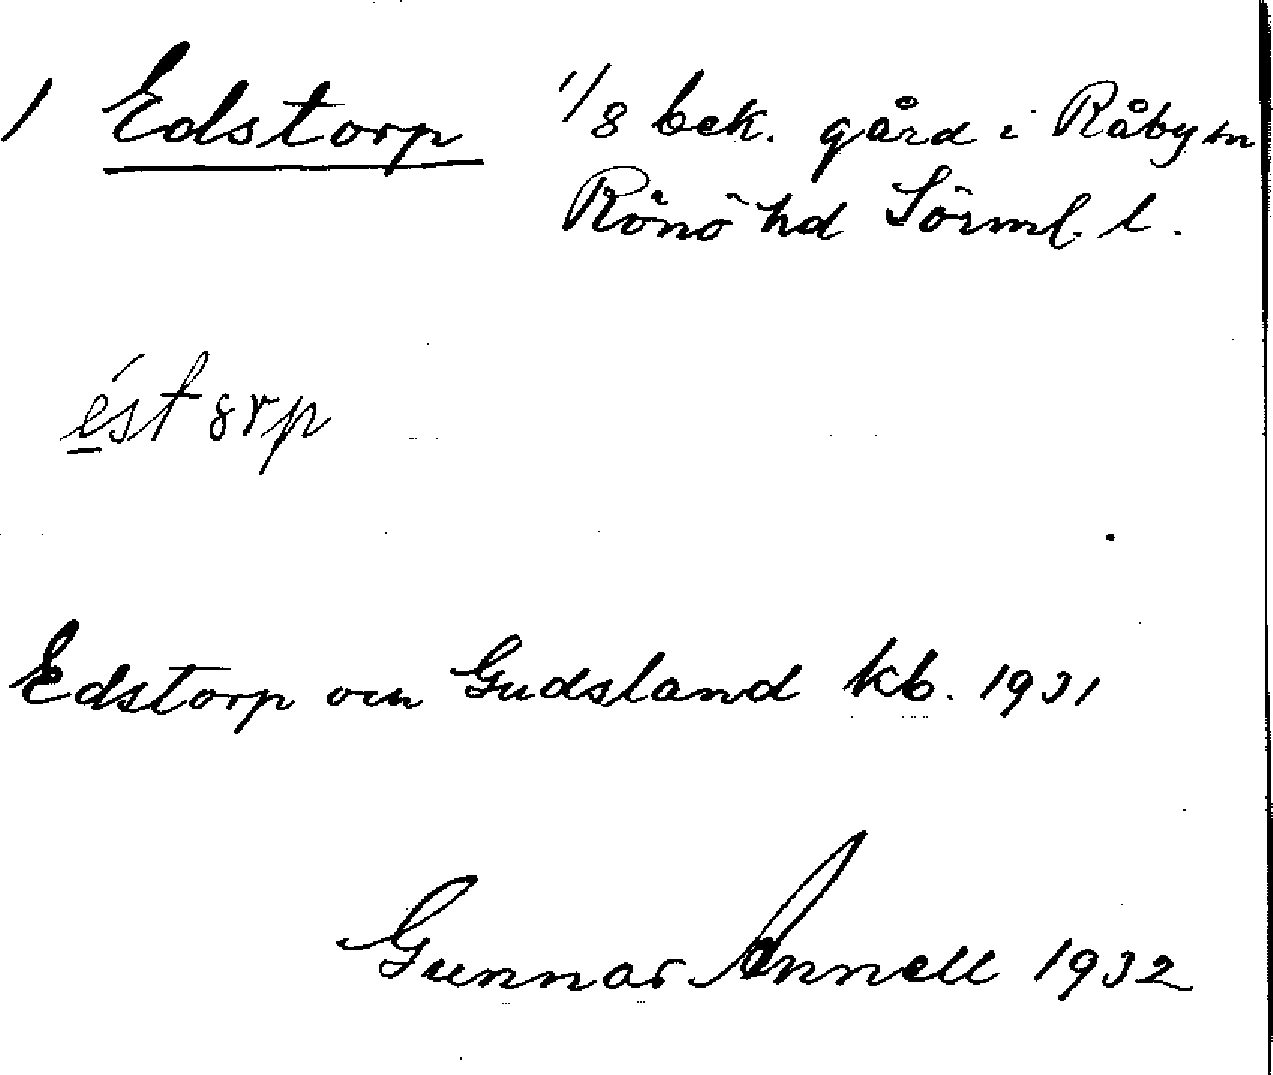 1 Edstorp 1/8 bek. gård i Råby sn
Rönö hd Sörml. l.
éstorp
Edstorp och Gudsland kb. 1931
Gunnar Annell 1932